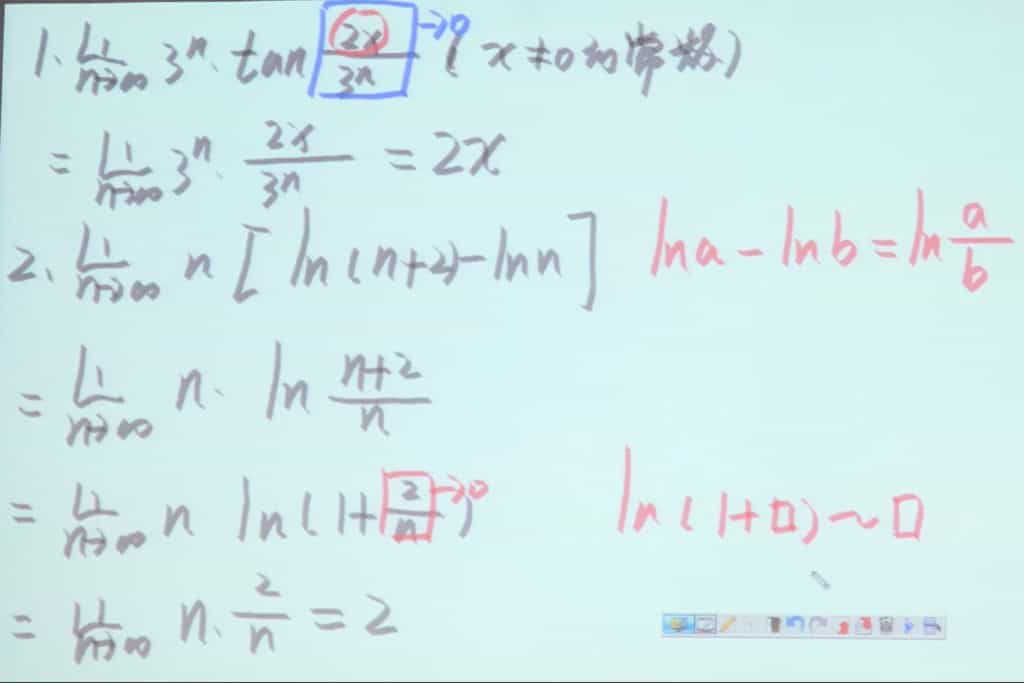 1. lim n→∞ 3ⁿ · tan 2x/3ⁿ →0 ( x≠0的常数)
= lim n→∞ 3ⁿ · 2x/3ⁿ = 2x
2. lim n→∞ n [ ln(n+2)-ln n ] ln a - ln b = ln a/b
= lim n→∞ n · ln n+2/n
= lim n→∞ n ln(1+ 2/n →0 ) ln(1+□)~□
= lim n→∞ n · 2/n = 2